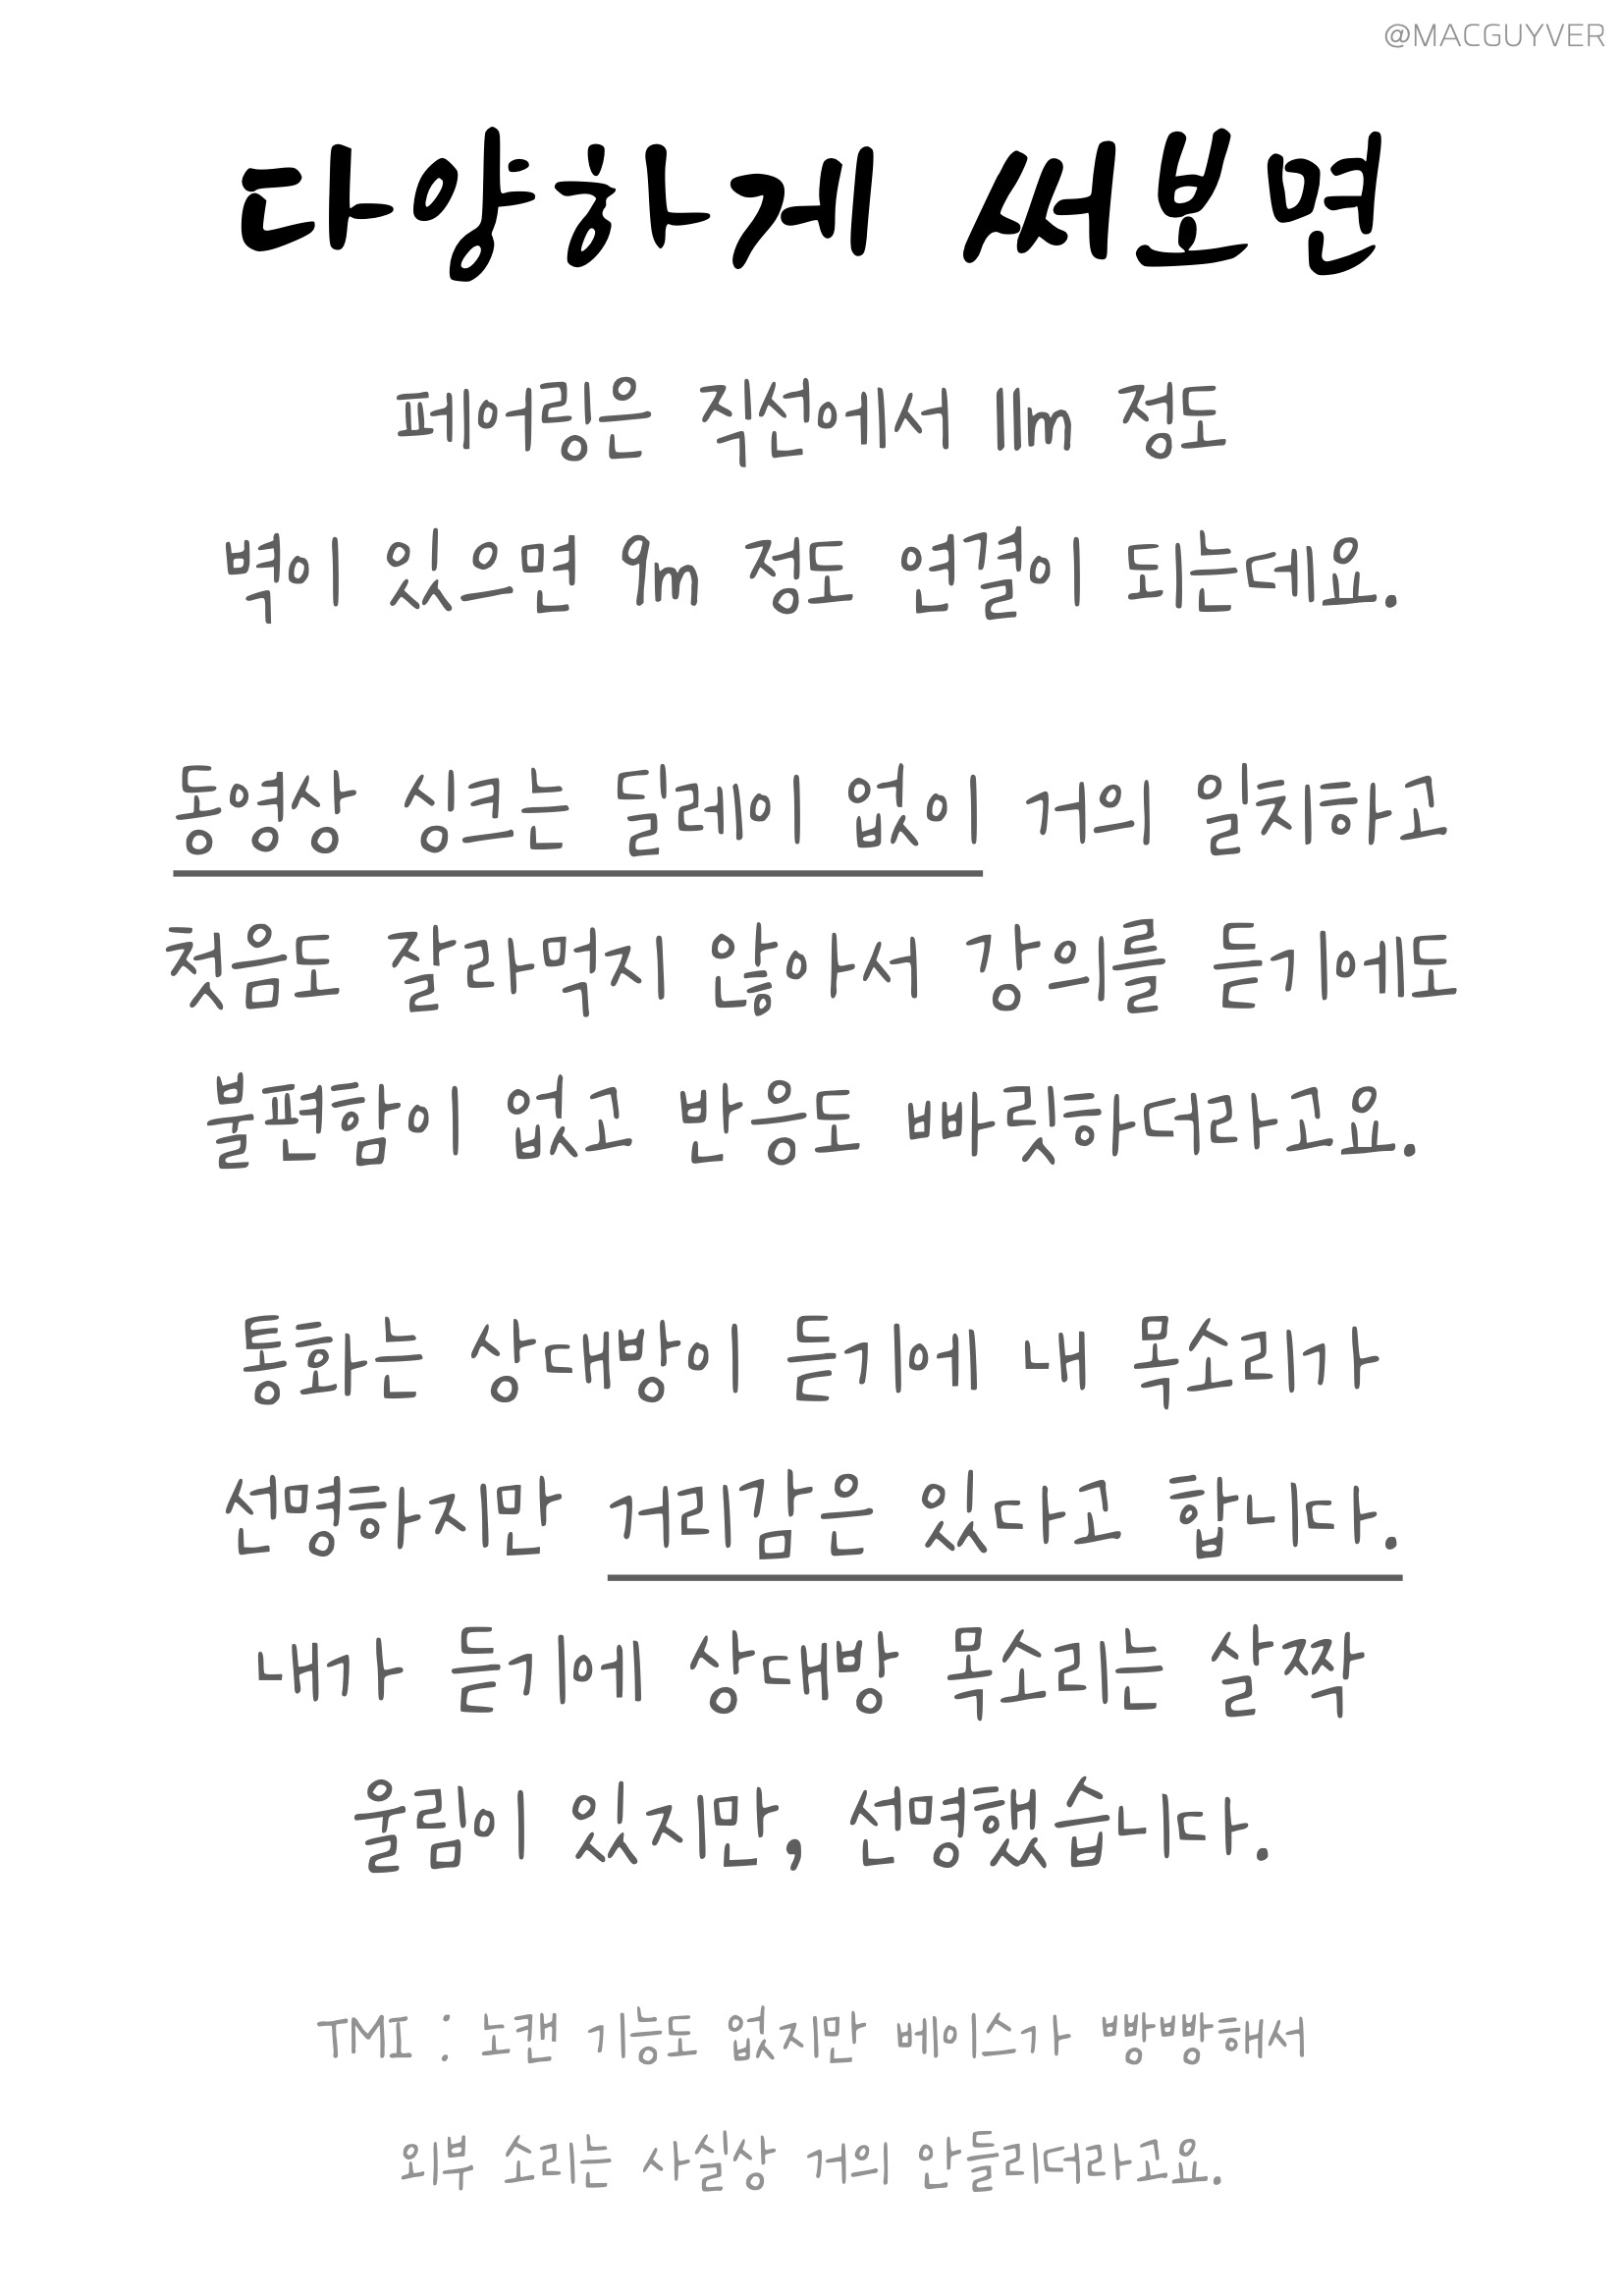 @MACGUYVER
다양하게 써보면
페어링은 직선에서 11m 정도
벽이 있으면 9m 정도 연결이 되는데요.
동영상 싱크는 딜레이 없이 거의 일치하고
첫음도 잘라먹지 않아서 강의를 듣기에도
불편함이 없고 반응도 빠릿하더라고요.
통화는 상대방이 듣기에 내 목소리가
선명하지만 거리감은 있다고 합니다.
내가 듣기에 상대방 목소리는 살짝
울림이 있지만, 선명했습니다.
TMI : 노캔 기능도 없지만 베이스가 빵빵해서
외부 소리는 사실상 거의 안들리더라고요.